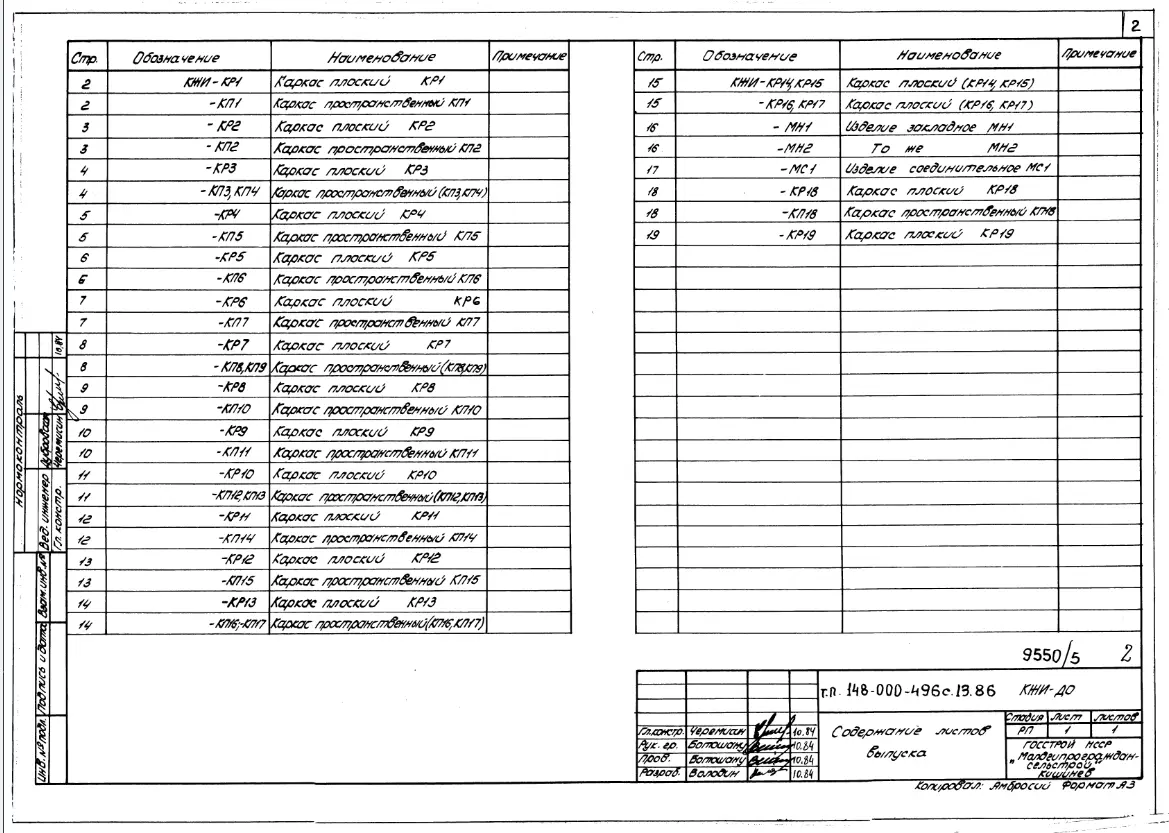 2
Стр. Обозначение Наименование Примечание
2 КЖИ-КР1 Каркас плоский КР1
2 -КП1 Каркас пространственный КП1
3 -КР2 Каркас плоский КР2
3 -КП2 Каркас пространственный КП2
4 -КР3 Каркас плоский КР3
4 -КП3, КП4 Каркас пространственный (КП3, КП4)
5 -КР4 Каркас плоский КР4
5 -КП5 Каркас пространственный КП5
6 -КР5 Каркас плоский КР5
6 -КП6 Каркас пространственный КП6
7 -КР6 Каркас плоский КР6
7 -КП7 Каркас пространственный КП7
8 -КР7 Каркас плоский КР7
8 -КП8, КП9 Каркас пространственный (КП8, КП9)
9 -КР8 Каркас плоский КР8
9 -КП10 Каркас пространственный КП10
10 -КР9 Каркас плоский КР9
10 -КП11 Каркас пространственный КП11
11 -КР10 Каркас плоский КР10
11 -КП12, КП13 Каркас пространственный (КП12, КП13)
12 -КР11 Каркас плоский КР11
12 -КП14 Каркас пространственный КП14
13 -КР12 Каркас плоский КР12
13 -КП15 Каркас пространственный КП15
14 -КР13 Каркас плоский КР13
14 -КП16;-КП17 Каркас пространственный (КП16, КП17)
Стр. Обозначение Наименование Примечание
15 КЖИ-КР14, КР15 Каркас плоский (КР14, КР15)
15 -КР16, КР17 Каркас плоский (КР16, КР17)
16 -МН1 Изделие закладное МН1
16 -МН2 То же МН2
17 -МС1 Изделие соединительное МС1
18 -КР18 Каркас плоский КР18
18 -КП18 Каркас пространственный КП18
19 -КР19 Каркас плоский КР19
нормоконтроль
Вед. инженер Дубровская
Гл. констр. Черемисин 10.84
Инв. № подл. Подпись и дата Взам инв. №
9550/5 2
т.п. 148-000-496с.13.86 КЖИ-ДО
Гл.констр. Черемисин 10.84
Рук. гр. Ботошану 10.84
Пров. Ботошану 10.84
Разраб. Володин 10.84
Содержание листов
выпуска
Стадия Лист Листов
РП 1 1
ГОССТРОЙ МССР
„Молдгипрограждан-
сельстрой”
Кишинев
Копировал: Амбросий Формат А3